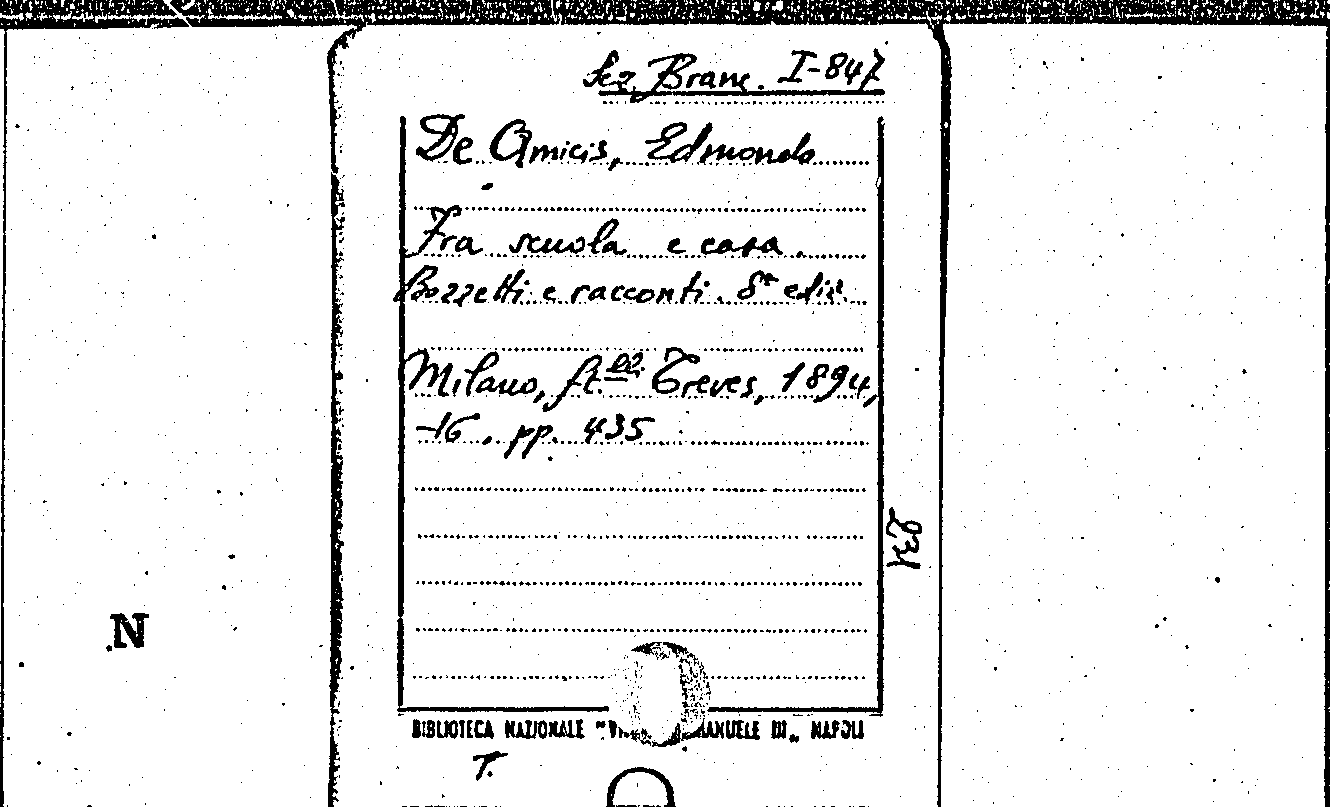 Sez. Branc. I-847
De Amicis, Edmondo
Fra scuola e casa.
Bozzetti e racconti. 8ª ediz.
Milano, ft.lli Treves, 1894,
-16. pp. 435
231
N
BIBLIOTECA NAZIONALE "VI ANUELE III„ NAPOLI
T.